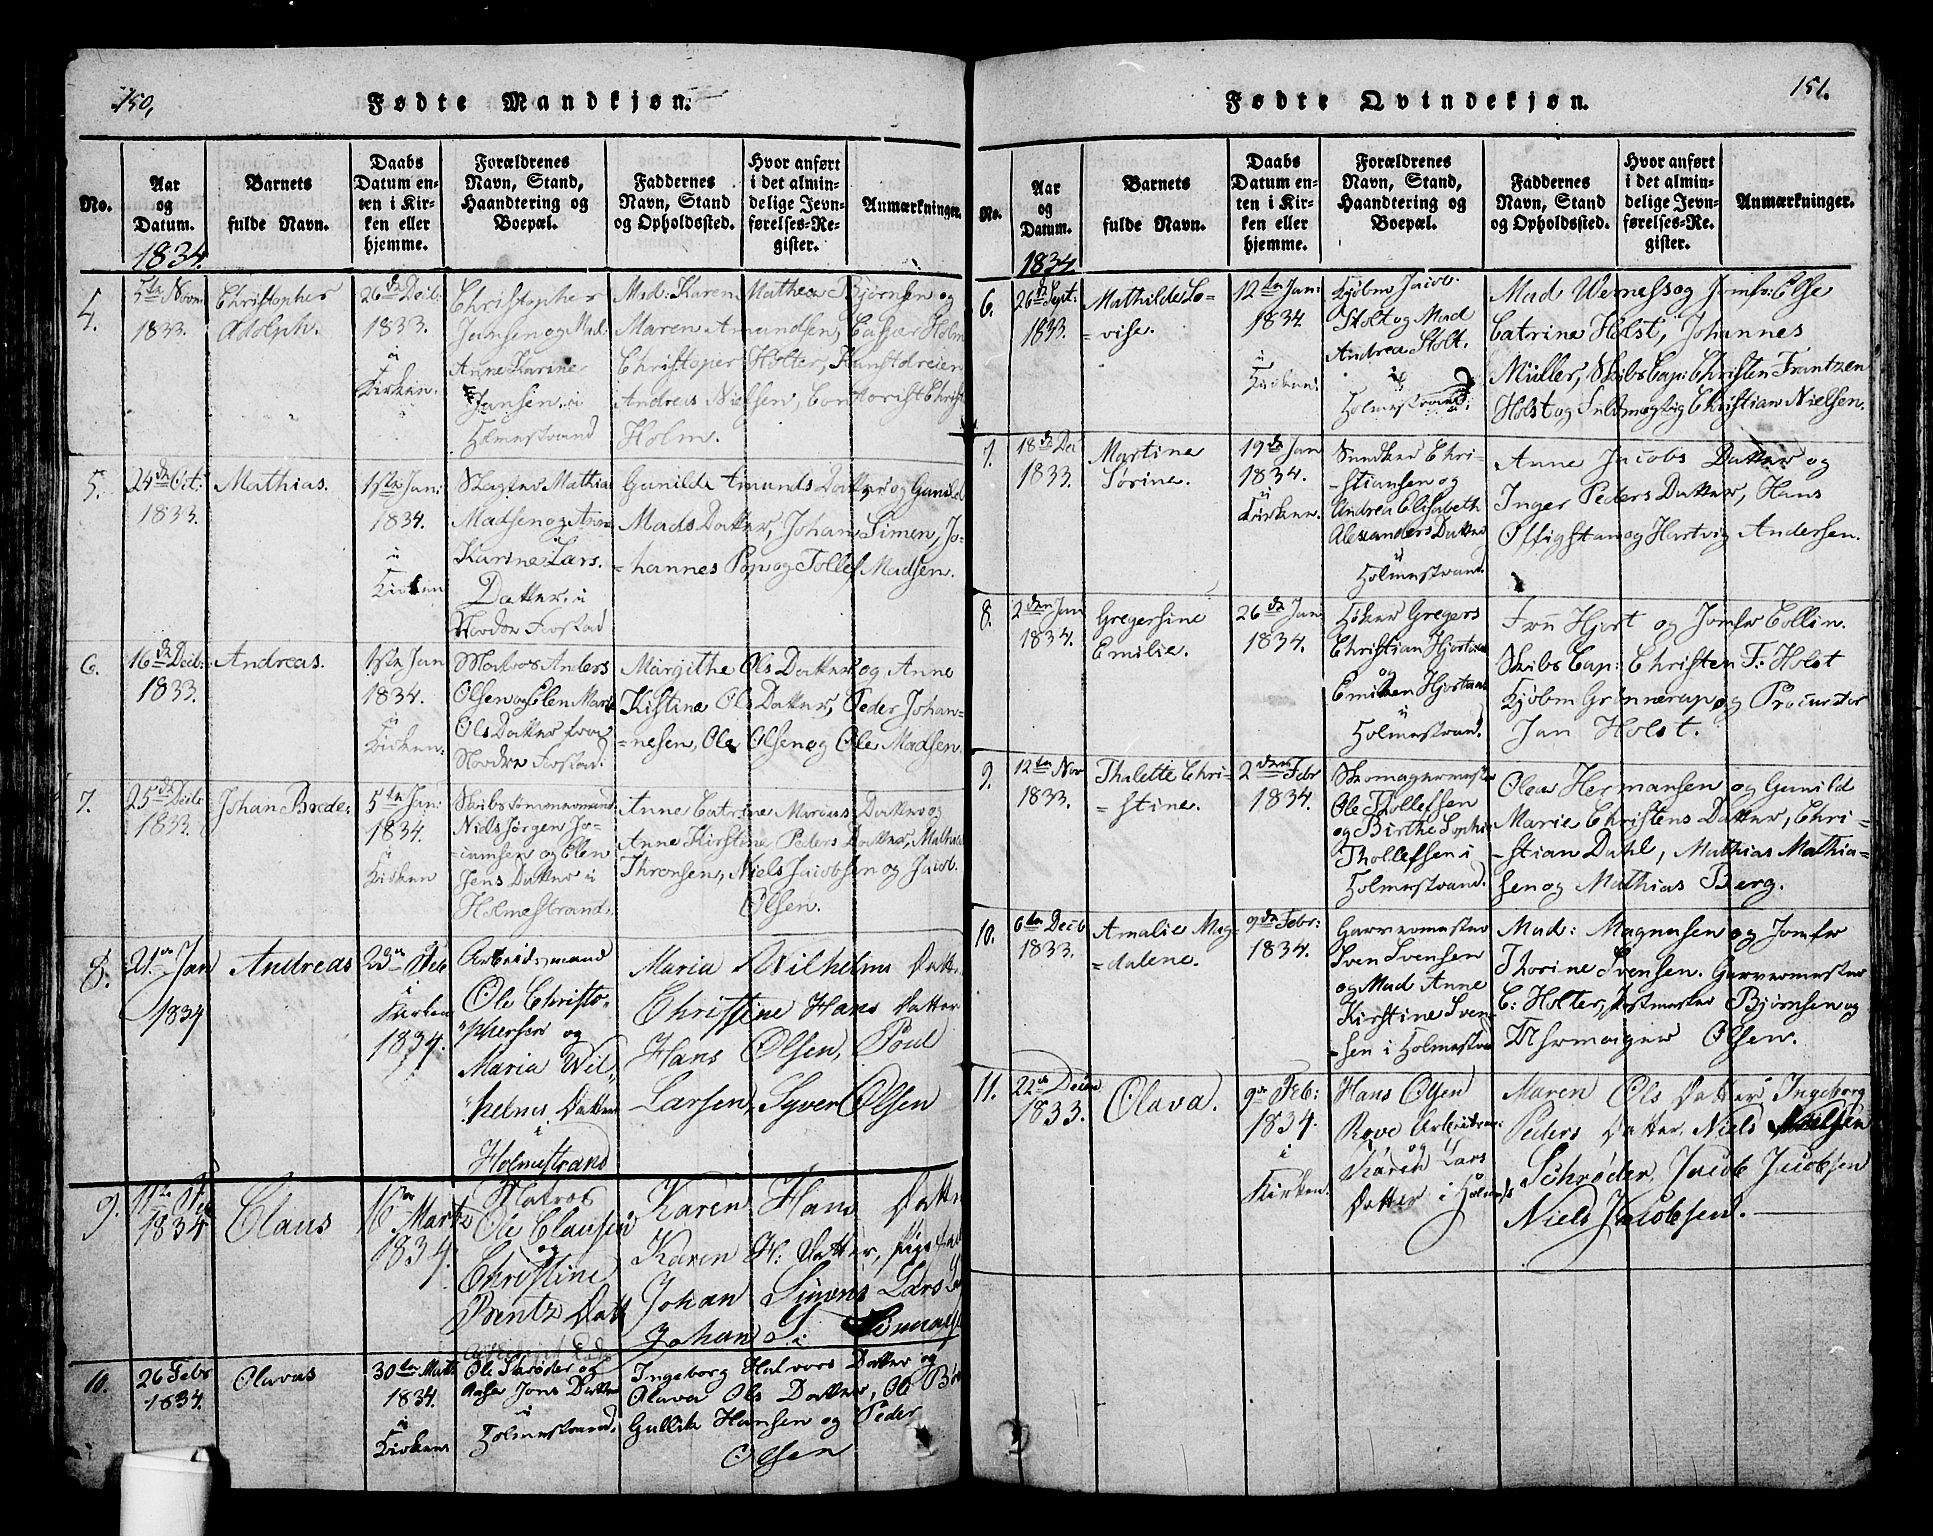 150,
Fødte Mandkjøn.
No.
Aar
og
Datum.
1834.
Barnets
fulde Navn.
Daabs
Datum en-
ten i Kir-
ken eller
hjemme.
Forældrenes
Navn, Stand,
Haandtering og
Boepæl.
Faddernes
Navn, Stand
og Opholdssted.
Hvor anført
i det almin-
delige Jevn-
førelses-Re-
gister.
Anmærkninger.
4.
5te Novm
1833.
Christopher
Adolph.
26de Decb:
1833.
i
Kirken.
Christopher
Jansen og Mad.
Anne Karine
Jansen i
Holmestrand
Mad: Karen Mathea Bjørnsen og
Maren Amundsen, Caspar Holm
Christopher Holter, Kunstdreier
Andreas Nielsen, Contorist Christ
Holm.
5.
24de Oct:
1833.
Mathias.
1ste Jan:
1834.
i
Kirken
Mathias
Madsen og Anne
Karine Lars
Datter i
Nordre
Gunilde Amunds Datter og Gunild
Mads Datter, Johan Simen, Jo-
-hannes Pop og Tollef Madsen.
6.
16de Decb:
1833.
Andreas.
1ste Jan
1834.
i
Kirken.
Matros Anders
Olsen og Elen Marie
Ols Datter fra
Nordre
Margithe Ols Datter og Anne
Kistine Ols Datter, Peder Johan-
-nesen, Ole Olsen og Ole Madsen.
7.
25de Decb
1833.
Johan Brede.
5te Jan:
1834.
i
Kirken
Skibstømmermand
Niels Jørgen Ja-
-cumsen og Elen
Jens Datter i
Holmestrand.
Anne Catrine Marius Datter og
Anne Kirstine Peders Datter, Mathias
Thronsen, Niels Jacobsen og Jacob
Olsen.
8.
21de Jan
1834
Andreas
23de Feb
i
Kirken
1834.
Arbeidsmand
Ole Christo-
"phersen og
Maria Wil-
"helms Datter
i
Holmestrand
Maria Wilhelms Datt.
Christine Hans Datter
Hans Olsen, Poul
Larsen, Syver Olsen
9.
11te Feb
1834
Claus
16de Martz
1834.
Matros
Ole Clausen
og
Christine
Brentz Datt
Karen Hans Datter
Karen H. Datter,
Johan Simens Lars
Johan S.
10.
26 Febr
1834.
Olavus
30te Marts
1834.
i
Kirken
Ole Skrøder og
Aase Jons Datter
i
Holmestrand.
Ingeborg Halvors Datter og
Olava Ols Datter, Ole
Gullik Hansen og Peder
Olsen
151.
Fødte Qvindekjøn.
No.
Aar
og
Datum.
1834
Barnets
fulde Navn.
Daabs
Datum en-
ten i Kir-
ken eller
hjemme.
Forældrenes
Navn, Stand,
Haandtering og
Boepæl.
Faddernes
Navn, Stand
og Opholdssted.
Hvor anført
i det almin-
delige Jevn-
førelses-Re-
gister.
Anmærkninger.
6.
26de Sept:
1833.
Mathilde Lo-
-vise.
12te Jan:
1834.
i
Kirken:
Kjøbm Jacob
Stolt og Mad
Andrea Stolt.
i
Holmestrand.
Mad Werness og Jomfr: Else
Catrine Holst, Johannes
Müller, Skibs Cap: Christen Frantzen
Holst og Fuldmægtig Christian Nielsen.
7.
18de Dec
1833.
Martine
Sørine.
19de Jan
1834.
i
Kirken.
Chri-
-stiansen og
Andrea Elisabeth
Alexanders Datter
i
Holmestrand.
Anne Jacobs Datter og
Inger Peders Datter, Hans
Offigstan og Hartvig Andersen.
8.
2den Jan
1834.
Gregersine
Emilie.
26de Jan
1834.
Høker Gregers
Christian Hjort
og
i
Holmestrand.
Fru Hjort og Jomfr Collin.
Skibs Cap: Christen F. Holst
Kjøbm Grønnerup og Procurator
Jan Holst.
9.
12te Nov
1833.
Thalette Chri-
-stine.
2den Febr
1834.
Skomagermester
Ole Thollefsen
og Birthe Sophie
Thollefsen i
Holmestrand.
Olea Hermansen og Gunild
Marie Christens Datter, Chri-
-stian Dahl, Mathias Mathia-
sen og Mathias Berg.
10.
6te Decb
1833.
Amalie Mag-
-dalene.
9de Febr:
1834.
Garvermester
Sven Svensen
og Mad Anne
Kirstine Sven-
-sen i Holmestrand
Mad: Magnusen og Jomfr
Thorine Svensen. Garvermester
C: Holter, Postmester Bjørnsen og
Olsen.
11.
22de Decbr
1833.
Olava.
9de Feb:
1834.
i
Kirken.
Hans Olsen
Rove Arbeidsm:
og
Karen Lars
Datter i Holmes
Maren Ols Datter Ingeborg
Peders Datter, Niels Nielsen
Schrøder, Jacob Jacobsen
Niels Jacobsen.